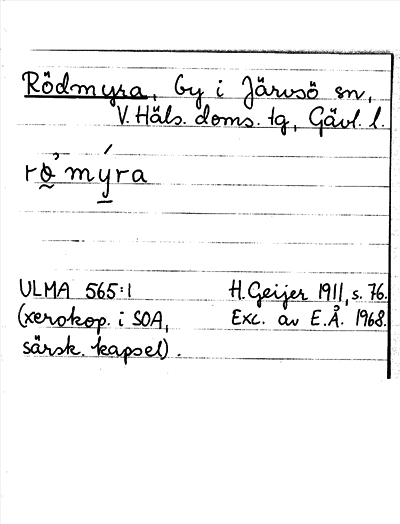 Rödmyra, by i Järvsö sn,
V. Häls. doms. tg, Gävl. l.
ULMA 565:1 H. Geijer 1911, s. 76.
(xerokop. i SOA, Exc. av E.Å. 1968.
särsk. kapsel).